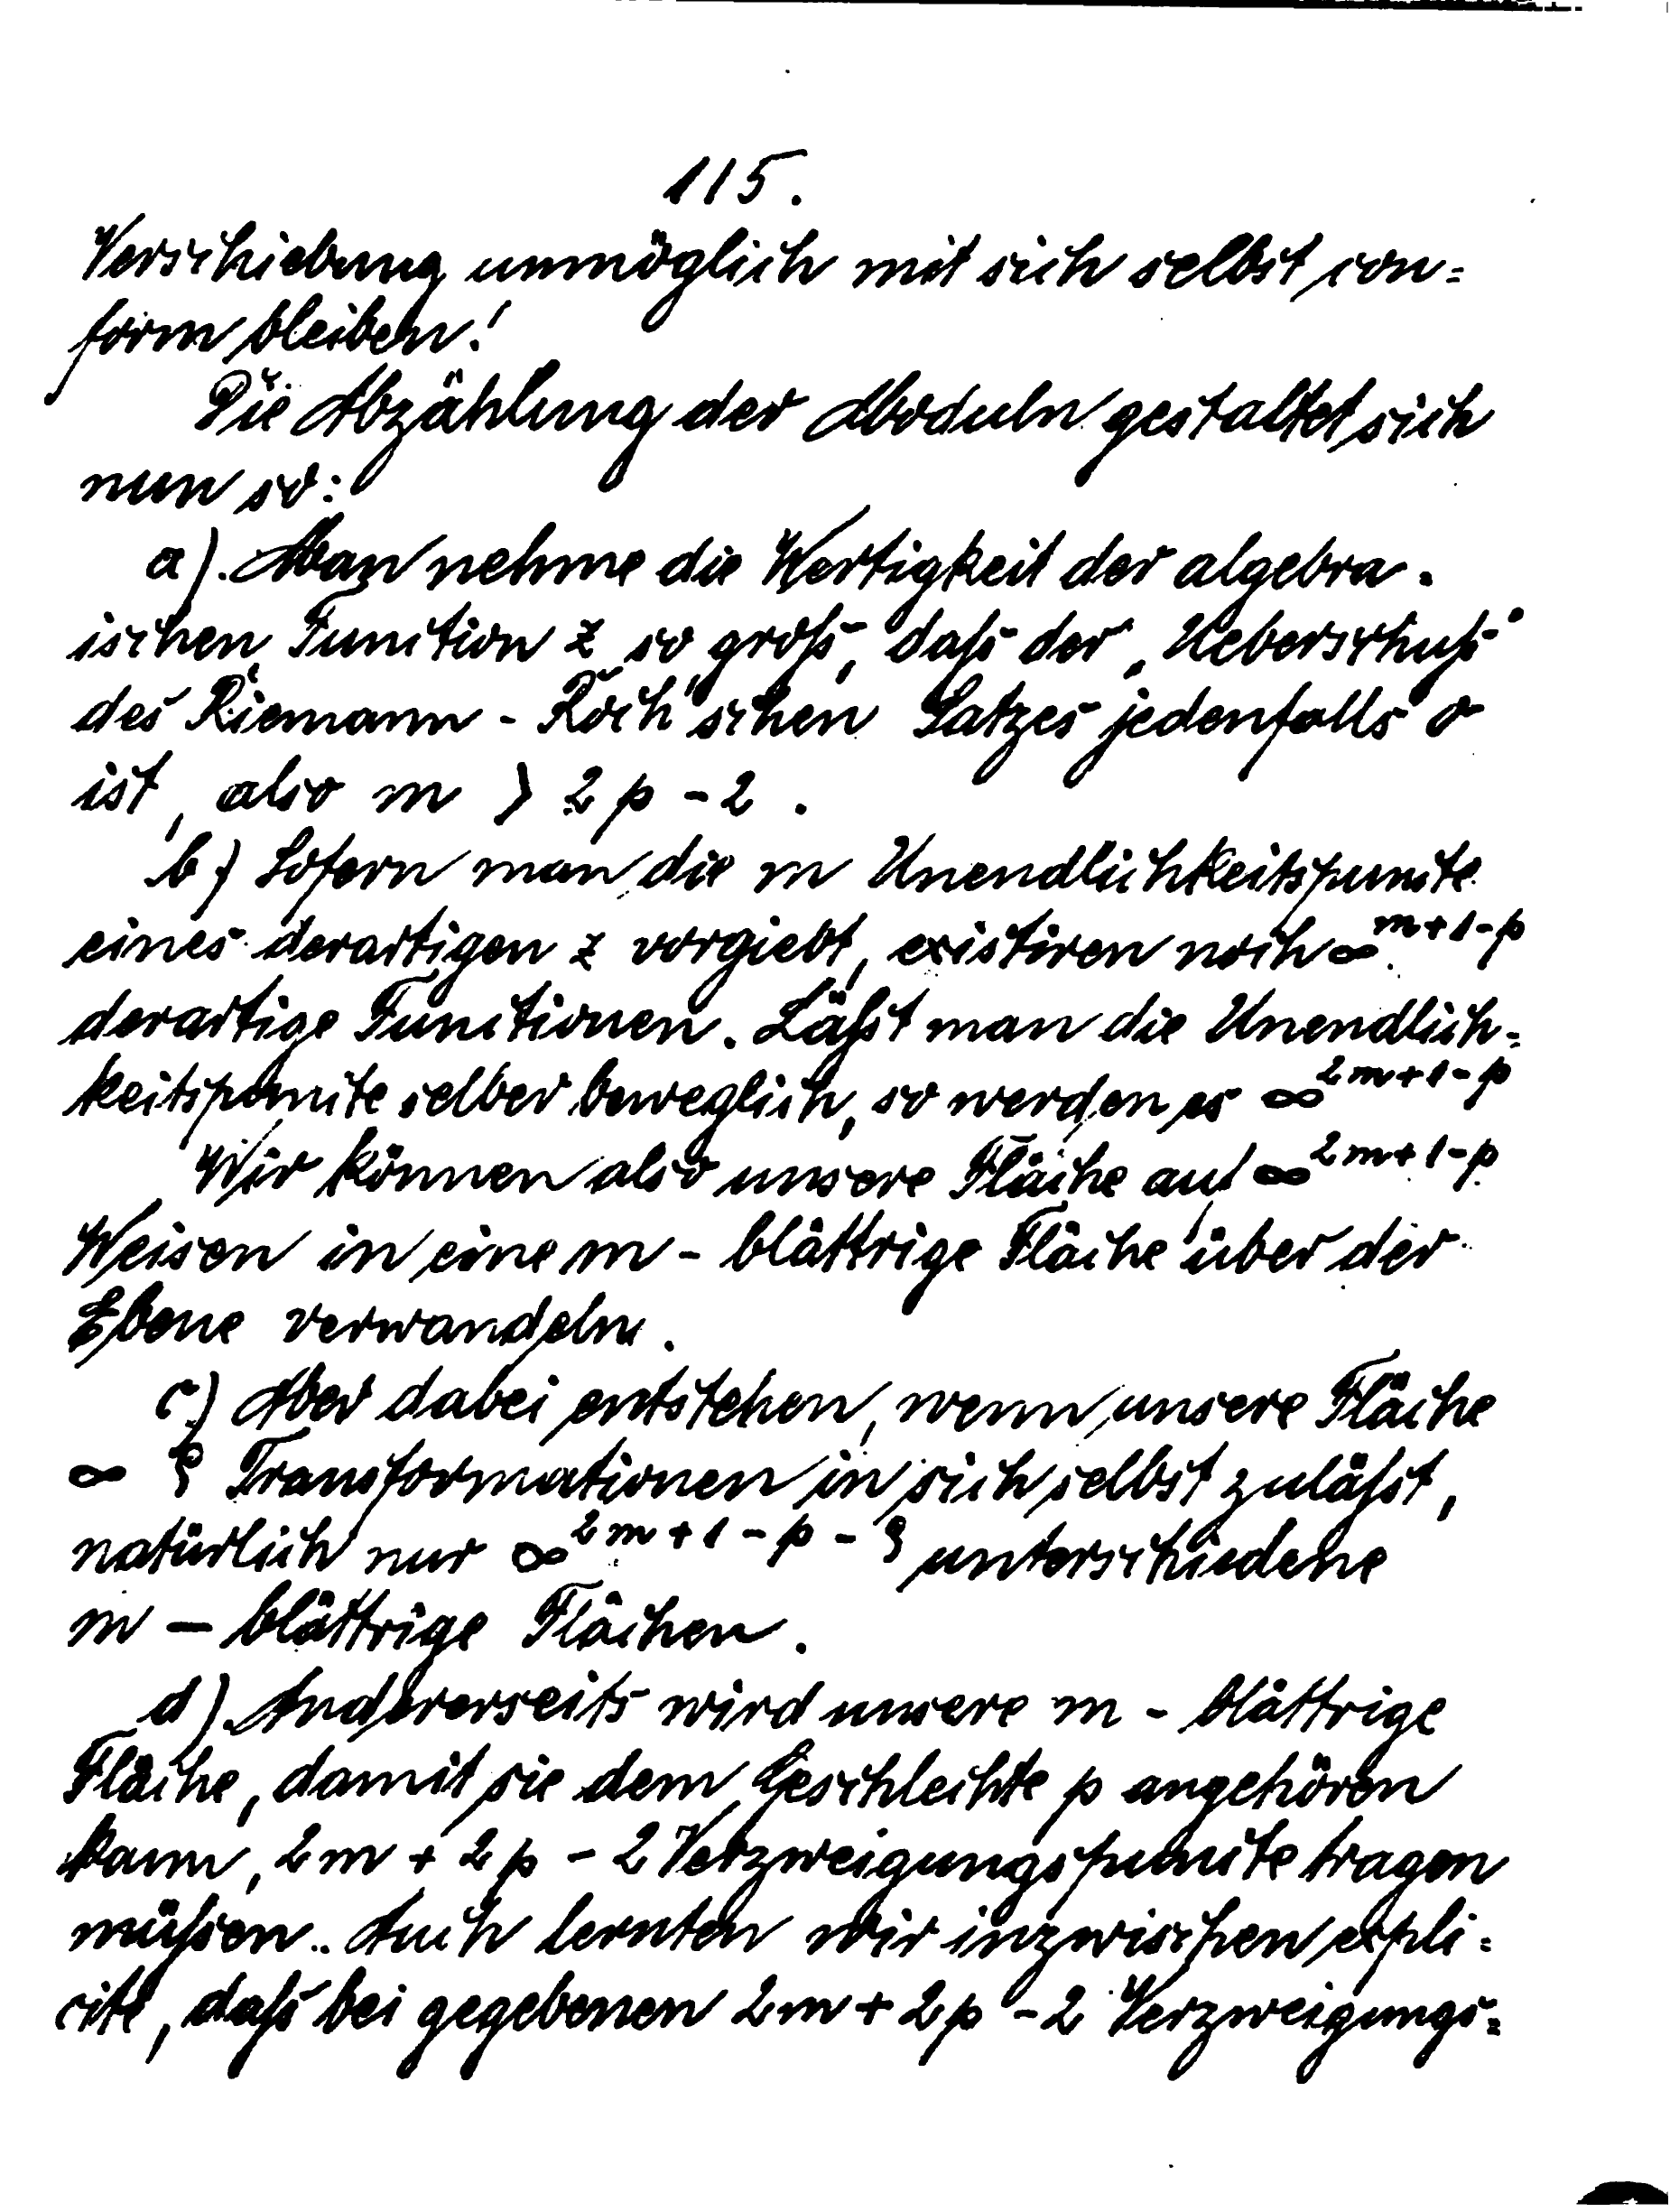 115.
Verschiebung unmöglich mit sich selbst con=
form bleiben!
Die Abzählung der Moduln gestaltet sich
nun so:
a). Man nehme die Wertigkeit der algebra-
ischen Function z so groß, daß der „Ueberschuß"
des Riemann-Roch'schen Satzes jedenfalls 0
ist, also m > 2p-2.
b) Sofern man die m Unendlichkeitspuncte
eines derartigen z vorgiebt, existiren noch ∞^{m+1-p}
derartige Functionen. Läßt man die Unendlich=
keitspuncte selber beweglich, so werden es ∞^{2m+1-p}
Wir können also unsere Fläche auf ∞^{2m+1-p}
Weisen in eine m-blättrige Fläche über der
Ebene verwandeln.
c) Aber dabei entstehen, wenn unsere Fläche
∞^ϱ Transformationen in sich selbst zuläßt,
natürlich nur ∞^{2m+1-p-ϱ} unterschiedene
m-blättrige Flächen.
d) Andererseits wird unsere m-blättrige
Fläche, damit sie dem Geschlechte p angehören
kann, 2m+2p-2 Verzweigungspuncte tragen
müßen. Auch lernten wir inzwischen expli=
cite, daß bei gegebenen 2m+2p-2 Verzweigungs=